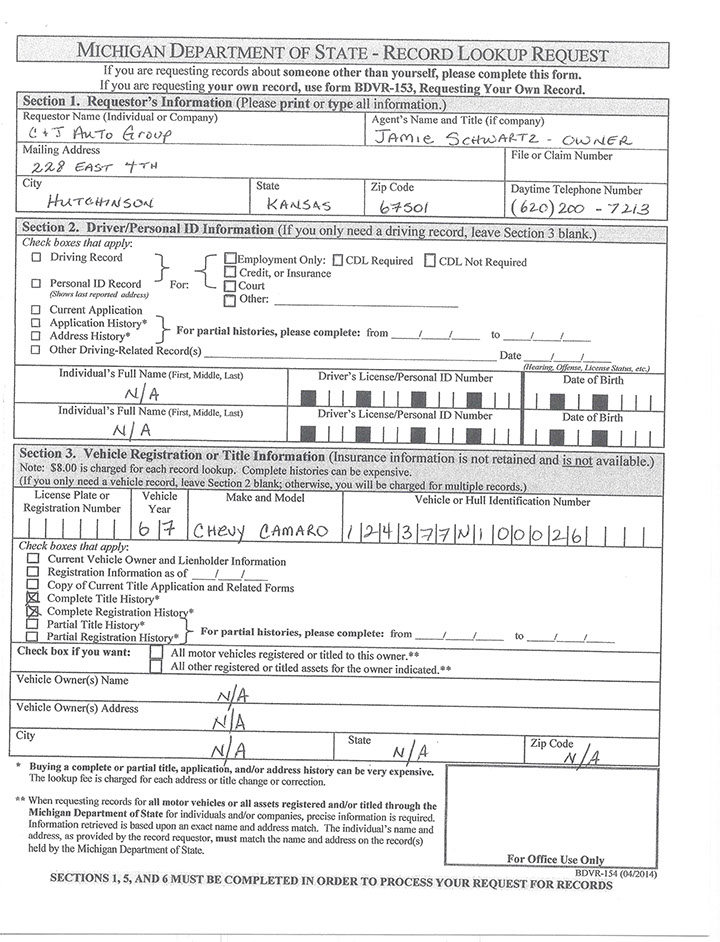 MICHIGAN DEPARTMENT OF STATE - RECORD LOOKUP REQUEST
If you are requesting records about someone other than yourself, please complete this form.
If you are requesting your own record, use form BDVR-153, Requesting Your Own Record.
Section 1. Requestor's Information (Please print or type all information.)
Requestor Name (Individual or Company) Agent's Name and Title (if company)
C+J AUTO GROUP JAMIE SCHWARTZ - OWNER
Mailing Address File or Claim Number
228 EAST 4TH
City State Zip Code Daytime Telephone Number
HUTCHINSON KANSAS 67501 (620)200-7213
Section 2. Driver/Personal ID Information (If you only need a driving record, leave Section 3 blank.)
Check boxes that apply:
Driving Record
Personal ID Record
(Shows last reported address)
For:
Employment Only: CDL Required CDL Not Required
Credit, or Insurance
Court
Other:
Current Application
Application History*
Address History*
For partial histories, please complete: from / / to / /
Other Driving-Related Record(s) Date / /
(Hearing, Offense, License Status, etc.)
Individual's Full Name (First, Middle, Last) Driver's License/Personal ID Number Date of Birth
N/A
Individual's Full Name (First, Middle, Last) Driver's License/Personal ID Number Date of Birth
N/A
Section 3. Vehicle Registration or Title Information (Insurance information is not retained and is not available.)
Note: $8.00 is charged for each record lookup. Complete histories can be expensive.
(If you only need a vehicle record, leave Section 2 blank; otherwise, you will be charged for multiple records.)
License Plate or Registration Number Vehicle Year Make and Model Vehicle or Hull Identification Number
67 CHEVY CAMARO 124377N100026
Check boxes that apply:
Current Vehicle Owner and Lienholder Information
Registration Information as of / /
Copy of Current Title Application and Related Forms
Complete Title History*
Complete Registration History*
Partial Title History*
Partial Registration History*
For partial histories, please complete: from / / to / /
Check box if you want: All motor vehicles registered or titled to this owner.**
All other registered or titled assets for the owner indicated.**
Vehicle Owner(s) Name
N/A
Vehicle Owner(s) Address
N/A
City State Zip Code
N/A N/A N/A
* Buying a complete or partial title, application, and/or address history can be very expensive.
The lookup fee is charged for each address or title change or correction.
** When requesting records for all motor vehicles or all assets registered and/or titled through the
Michigan Department of State for individuals and/or companies, precise information is required.
Information retrieved is based upon an exact name and address match. The individual's name and
address, as provided by the record requestor, must match the name and address on the record(s)
held by the Michigan Department of State.
For Office Use Only
BDVR-154 (04/2014)
SECTIONS 1, 5, AND 6 MUST BE COMPLETED IN ORDER TO PROCESS YOUR REQUEST FOR RECORDS